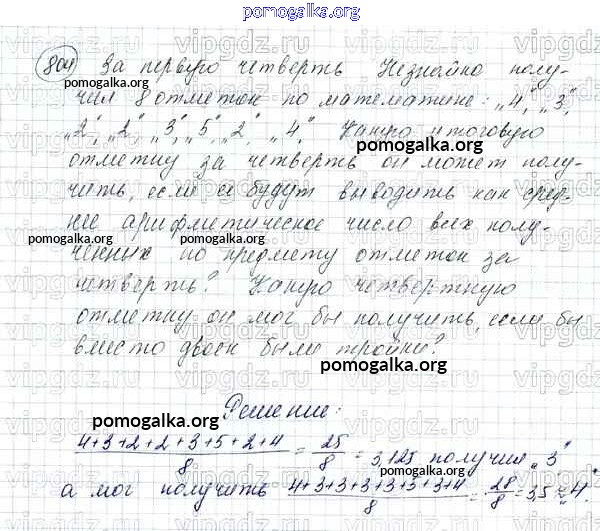 pomogalka.org
804 За первую четверть Незнайка полу-
чил 8 отметок по математике: „4", „3",
„2", „2", „3", „5", „2", „4". Какую итоговую
отметку за четверть он может полу-
чить, если её будут выводить как сред-
нее арифметическое число всех полу-
ченных по предмету отметок за
четверть? Какую четвертную
отметку он мог бы получить, если бы
вместо двоек были тройки?
Решение:
pomogalka.org
4+3+2+2+3+5+2+4/8 = 25/8 = 3,125 получил „3"
а мог получить 4+3+3+3+3+5+3+4/8 = 28/8 = 3,5 ≈ „4"